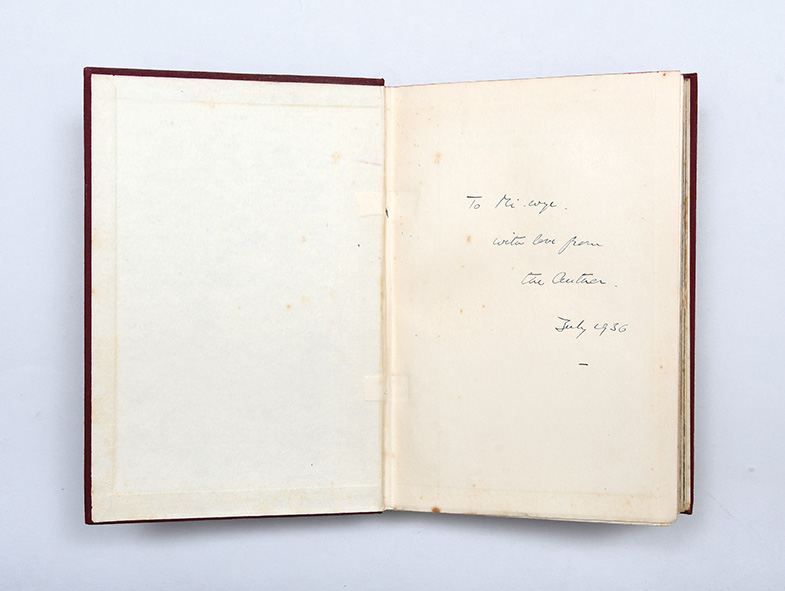 To Mi-wye.
with love from
the Author.
July 1936